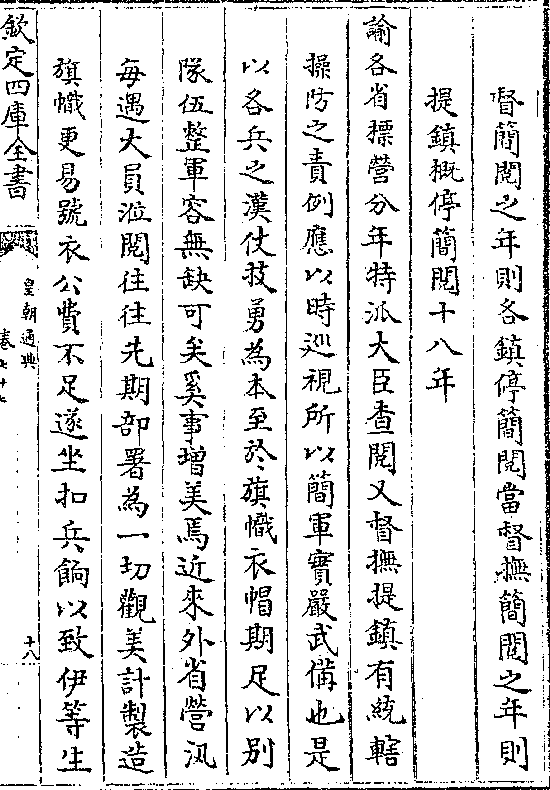 督簡閱之年則各鎮停簡閱當督撫簡閱之年則
提鎮概停簡閱十八年
諭各省標營分年特派大臣查閱又督撫提鎮有統轄
操防之責例應以時巡視所以簡軍實嚴武備也是
以各兵之漢仗技勇為本至於旗幟衣帽期足以別
隊伍整軍容無缺可矣奚事增美焉近來外省營汛
每遇大員涖閱往往先期部署為一切觀美計製造
旗幟更易號衣公費不足遂坐扣兵餉以致伊等生
欽定四庫全書
皇朝通典
卷七十七
十八